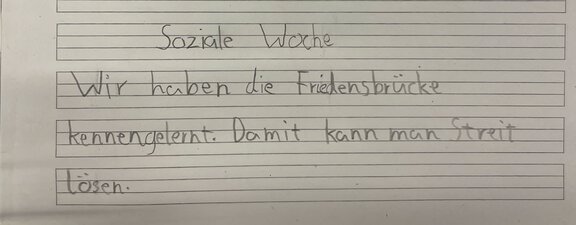 Soziale Woche
Wir haben die Friedensbrücke
kennengelernt. Damit kann man Streit
lösen.